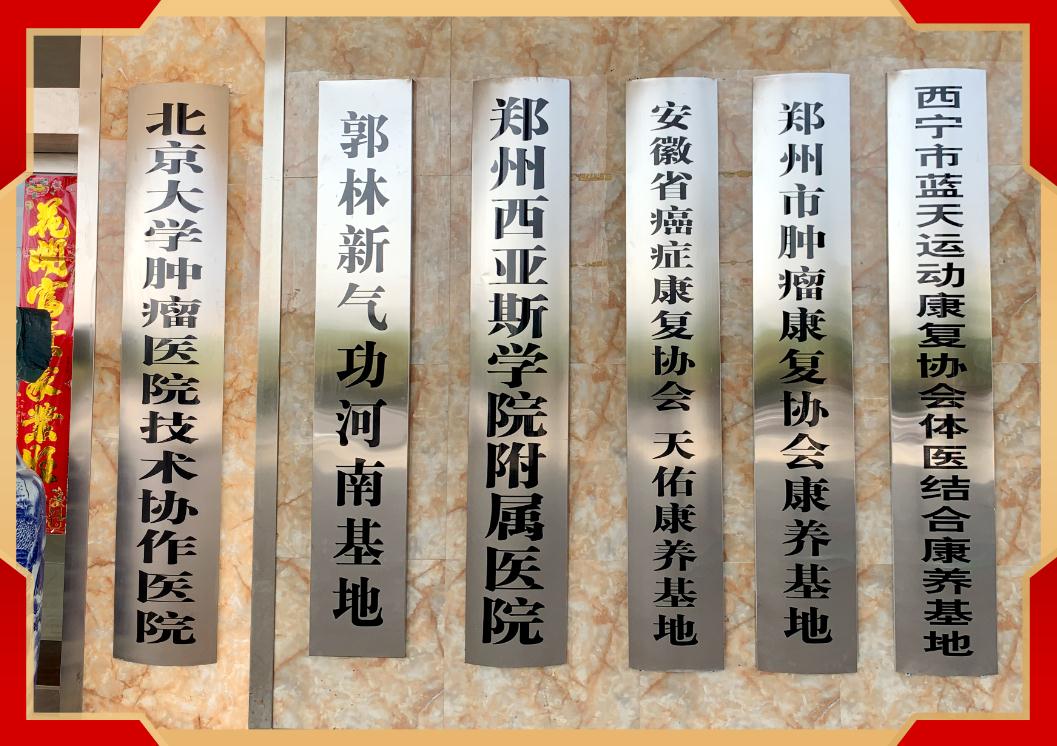 北京大学肿瘤医院技术协作医院
郭林新气功河南基地
郑州西亚斯学院附属医院
安徽省癌症康复协会 天佑康养基地
郑州市肿瘤康复协会康养基地
西宁市蓝天运动康复协会体医结合康养基地